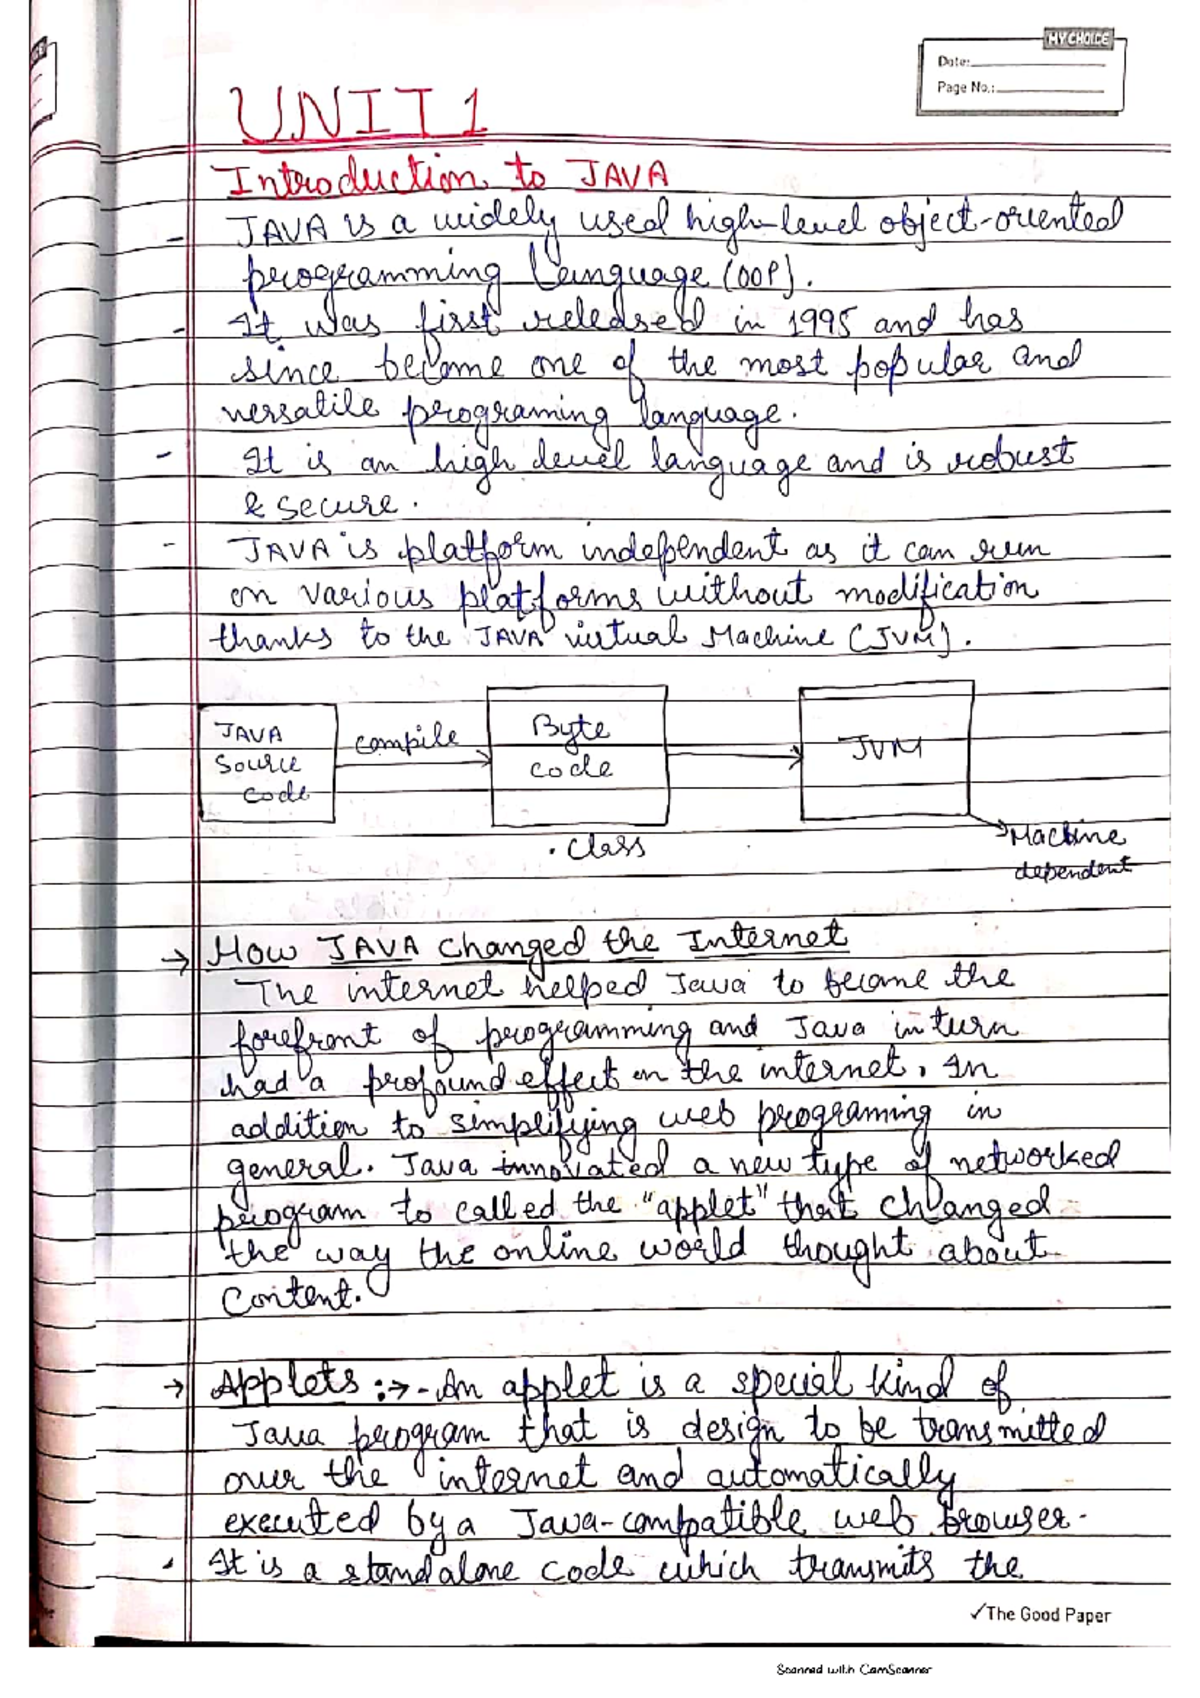 MY CHOICE
Date:
Page No.:
UNIT 1
Introduction to JAVA
- JAVA is a widely used high-level object-oriented
programming language (OOP).
- It was first released in 1995 and has
since become one of the most popular and
versatile programing language.
- It is an high level language and is robust
& secure.
- JAVA is platform independent as it can run
on various platforms without modification
thanks to the JAVA virtual Machine (JVM).
JAVA
Source
code
compile
Byte
code
. Class
JVM
Machine
dependent
→ How JAVA Changed the Internet
The internet helped Java to become the
forefront of programming and Java in turn
had a profound effect on the internet. In
addition to simplifying web programing in
general. Java innovated a new type of networked
program to called the "applet" that changed
the way the online world thought about
Content.
→ Applets :→ - An applet is a special kind of
Java program that is design to be transmitted
over the internet and automatically
executed by a Java-compatible web browser.
- It is a standalone code which transmits the
✓The Good Paper
Scanned with CamScanner